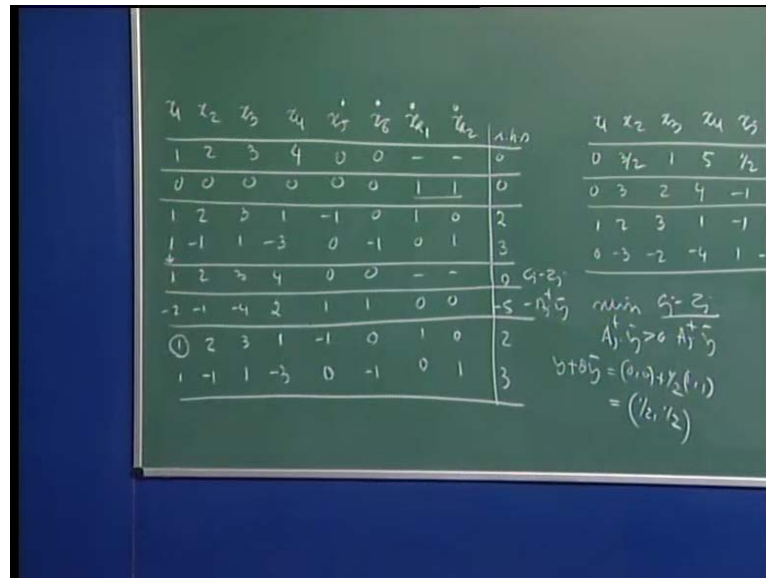 x₁ x₂ x₃ x₄ x₅ x₆ xₐ₁ xₐ₂ r.h.s
1 2 3 4 0 0 - - 0
0 0 0 0 0 0 1 1 0
1 2 3 1 -1 0 1 0 2
1 -1 1 -3 0 -1 0 1 3
1 2 3 4 0 0 - - 0 Cj-Zj
-2 -1 -4 2 1 1 0 0 -5
① 2 3 1 -1 0 1 0 2
1 -1 1 -3 0 -1 0 1 3
x₁ x₂ x₃ x₄ x₅
0 3/2 1 5 1/2
0 3 2 4 -1
1 2 3 1 -1
0 -3 -2 -4 1 -
min Cj-Zj
Aⱼᵗ ȳ>0 Aⱼᵗ ȳ
y+θȳ = (0,0)+1/2(1,1)
= (1/2, 1/2)